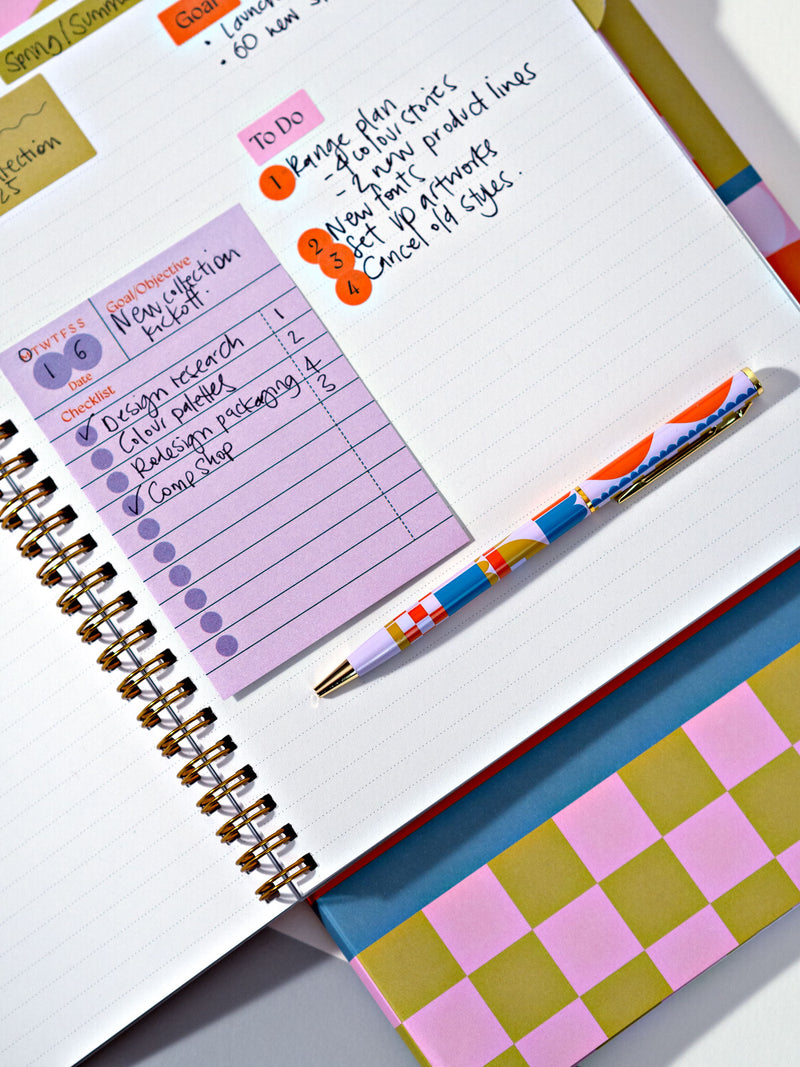 Spring/Summ
Goal
• Launch
• 60 new
llection
25
To Do
1 Range plan
- 4 colour stories
- 2 new product lines
2 New fonts
3 Set up artworks
4 Cancel old styles.
Goal/Objective
New collection
kickoff.
MTWTFSS
1 6
Date
Checklist
✓ Design research 1
Colour palettes 2
Redesign packaging 4
✓ Comp shop 3